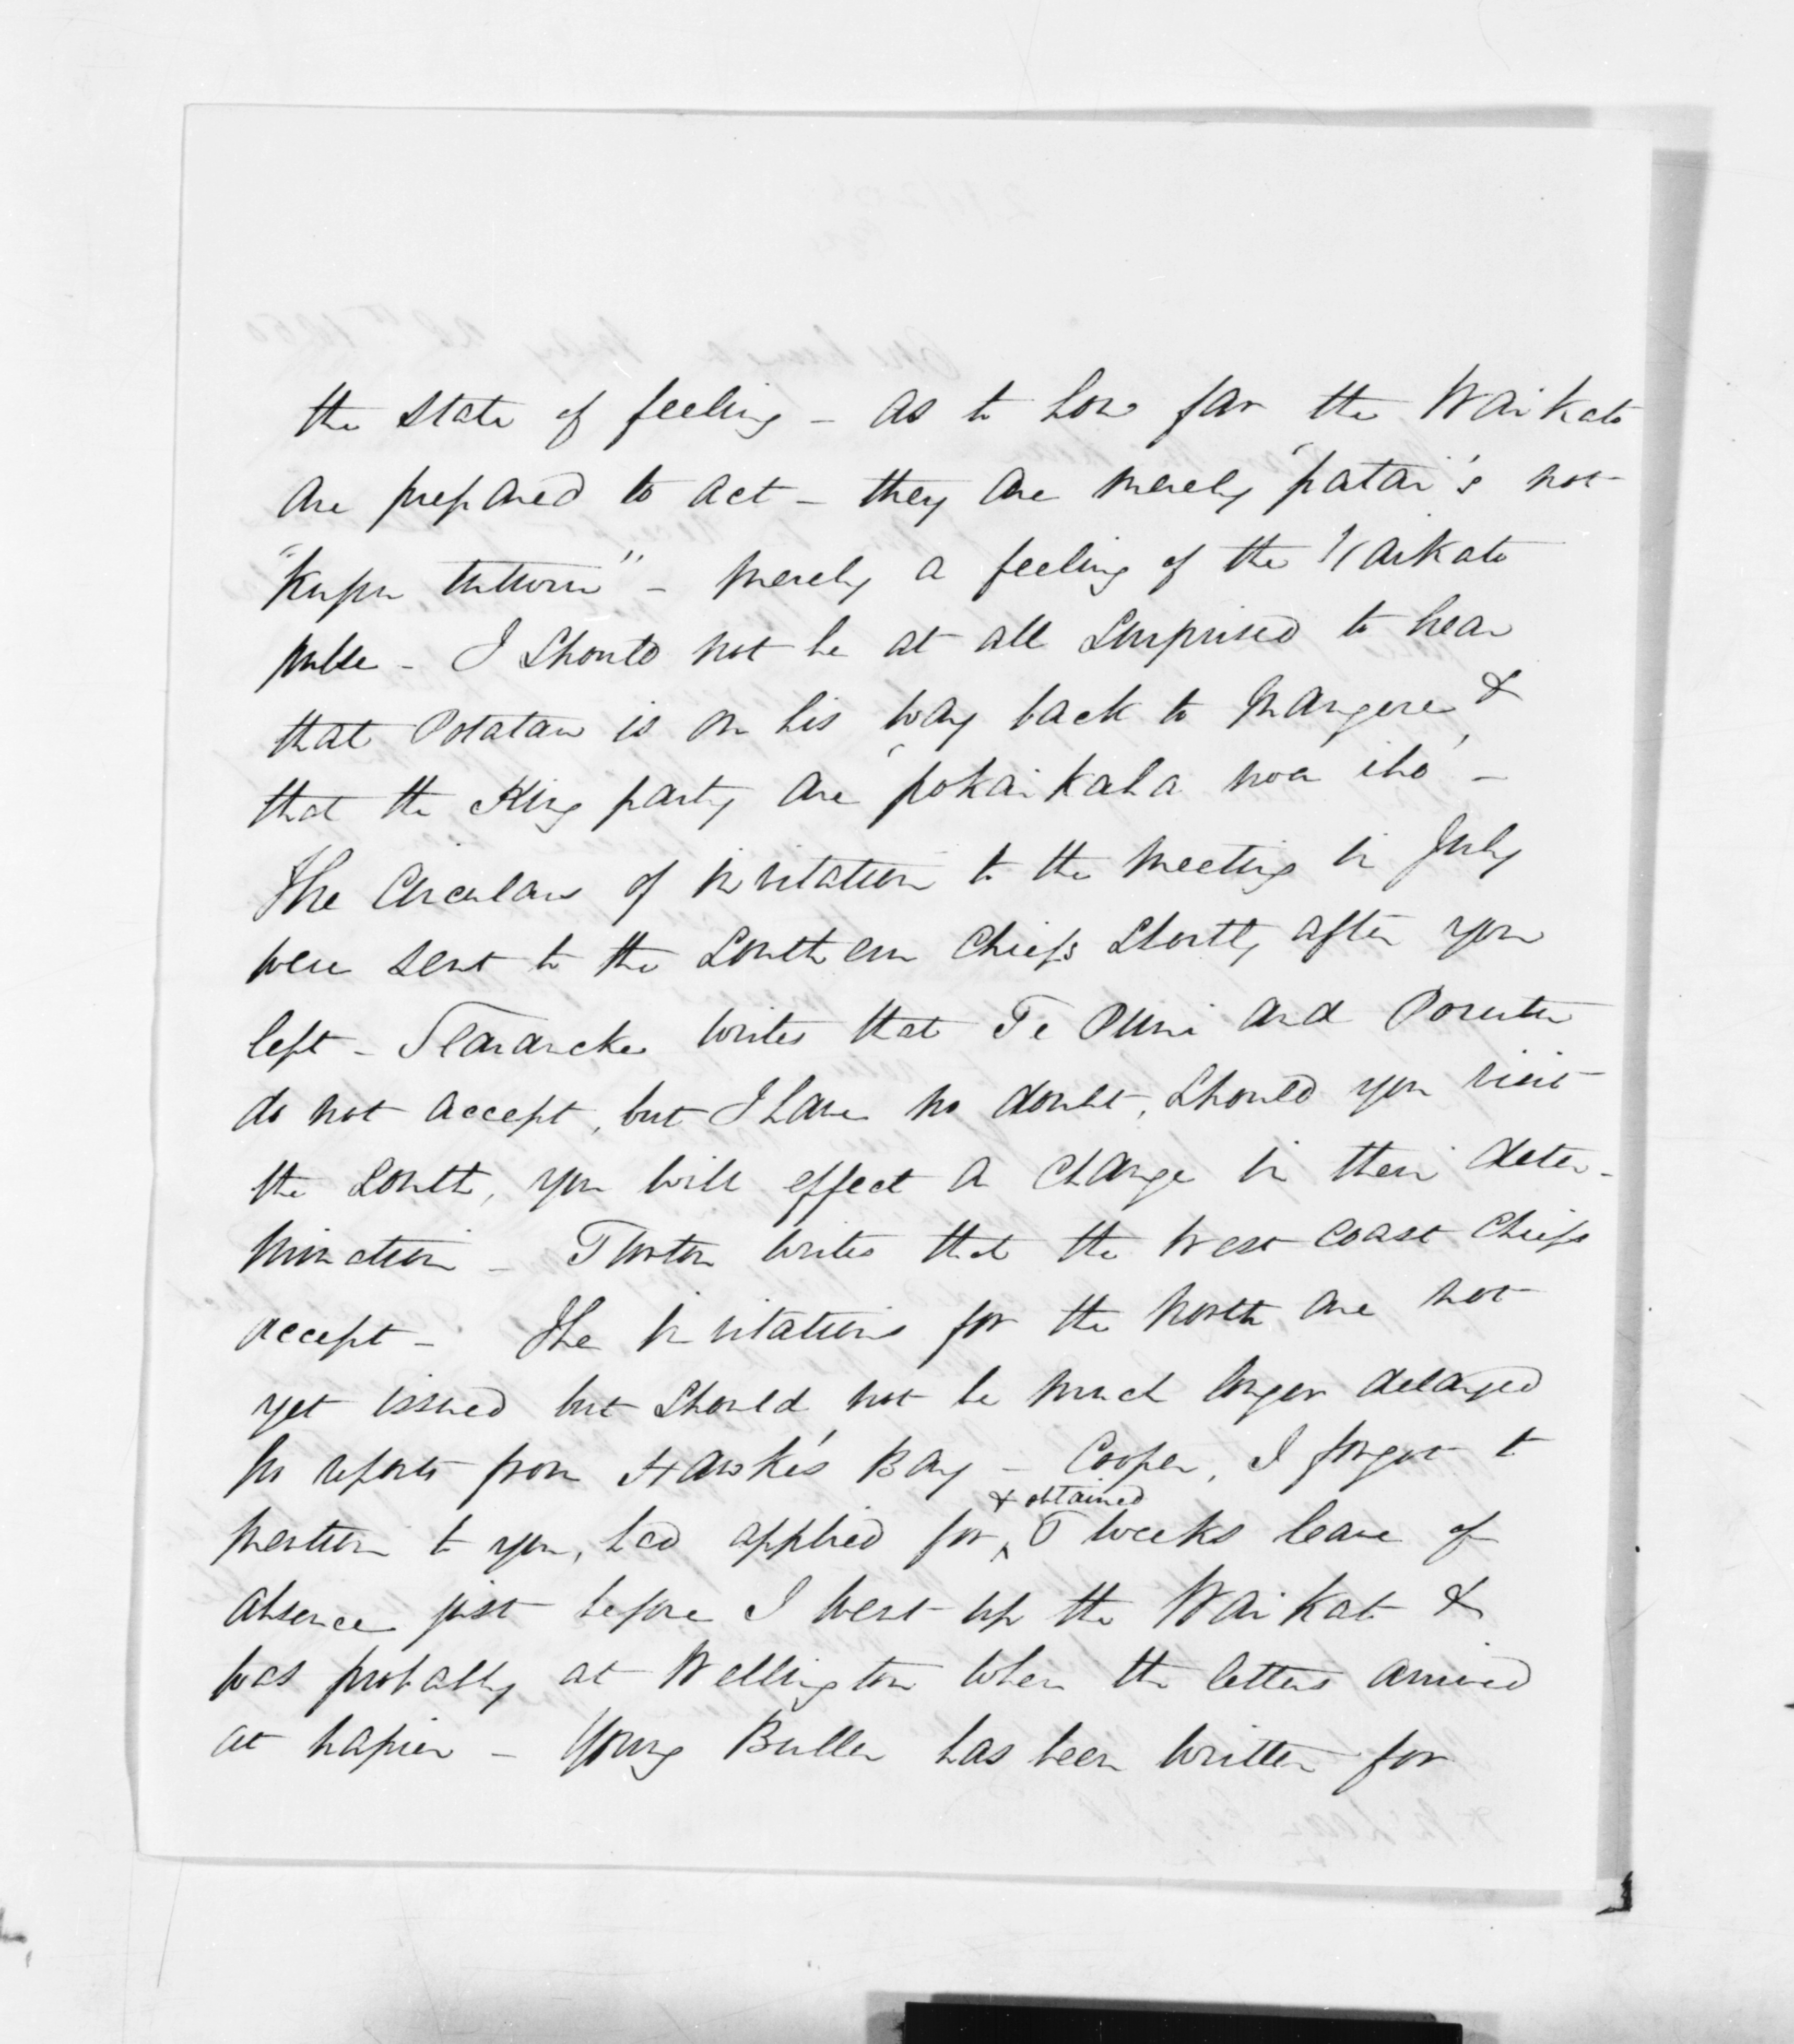 the state of feeling - as to how far the Waikato
are prepared to act - they are merely 'patai's not
"kupu tuturu" - merely a feeling of the Waikato
pulse - I should not be at all surprised to hear
that Potatau is on his way back to Mangere, &
that the King party are 'pokaikaha noa iho' -
The Circulars of invitation to the meeting in July
were sent to the Southern Chiefs shortly after you
left - Searancke writes that Te Puni and Porutu
do not accept, but I have no doubt, should you visit
the South, you will effect a change in their deter-
mination - Turton writes that the West Coast Chiefs
accept - The invitations for the North are not
yet issued but should not be much longer delayed
No reports from Hawke's Bay - Cooper, I forgot to
mention to you, had applied for & obtained weeks leave of
absence just before I went up the Waikato &
was probably at Wellington when the letters arrived
at Napier - Young Buller has been written for